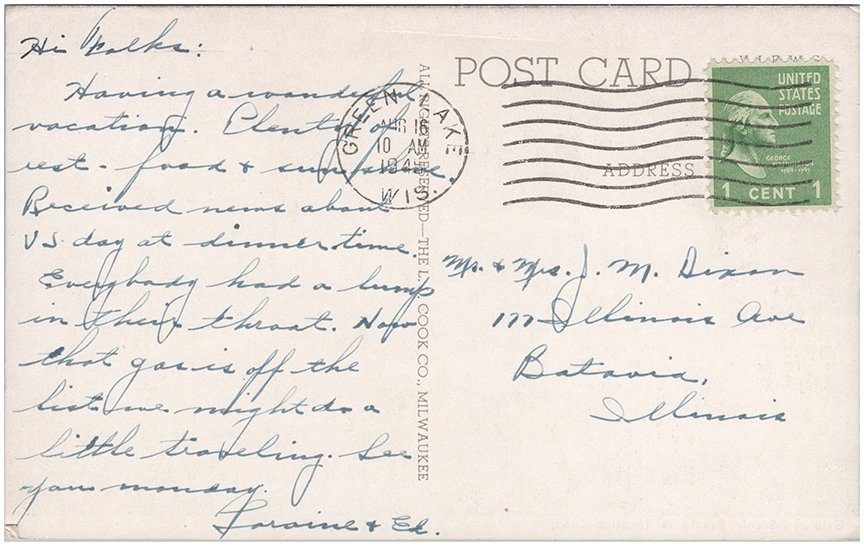 Hi Folks:
Having a wonderful
vacation. Plenty of
rest - food & sunshine.
Received news about
VJ day at dinner time.
Everybody had a lump
in their throat. Now
that gas is off the
list we might do a
little traveling. See
you monday.
Loraine & Ed.
ALL RIGHTS RESERVED—THE L. L. COOK CO., MILWAUKEE
POST CARD
GREEN LAKE
AUG 16
10 AM
194
WIS.
UNITED
STATES
POSTAGE
GEORGE
WASHINGTON
1789-1797
1 CENT 1
ADDRESS
Mr. & Mrs. J. M. Dixon
177 Illinois Ave
Batavia,
Illinois